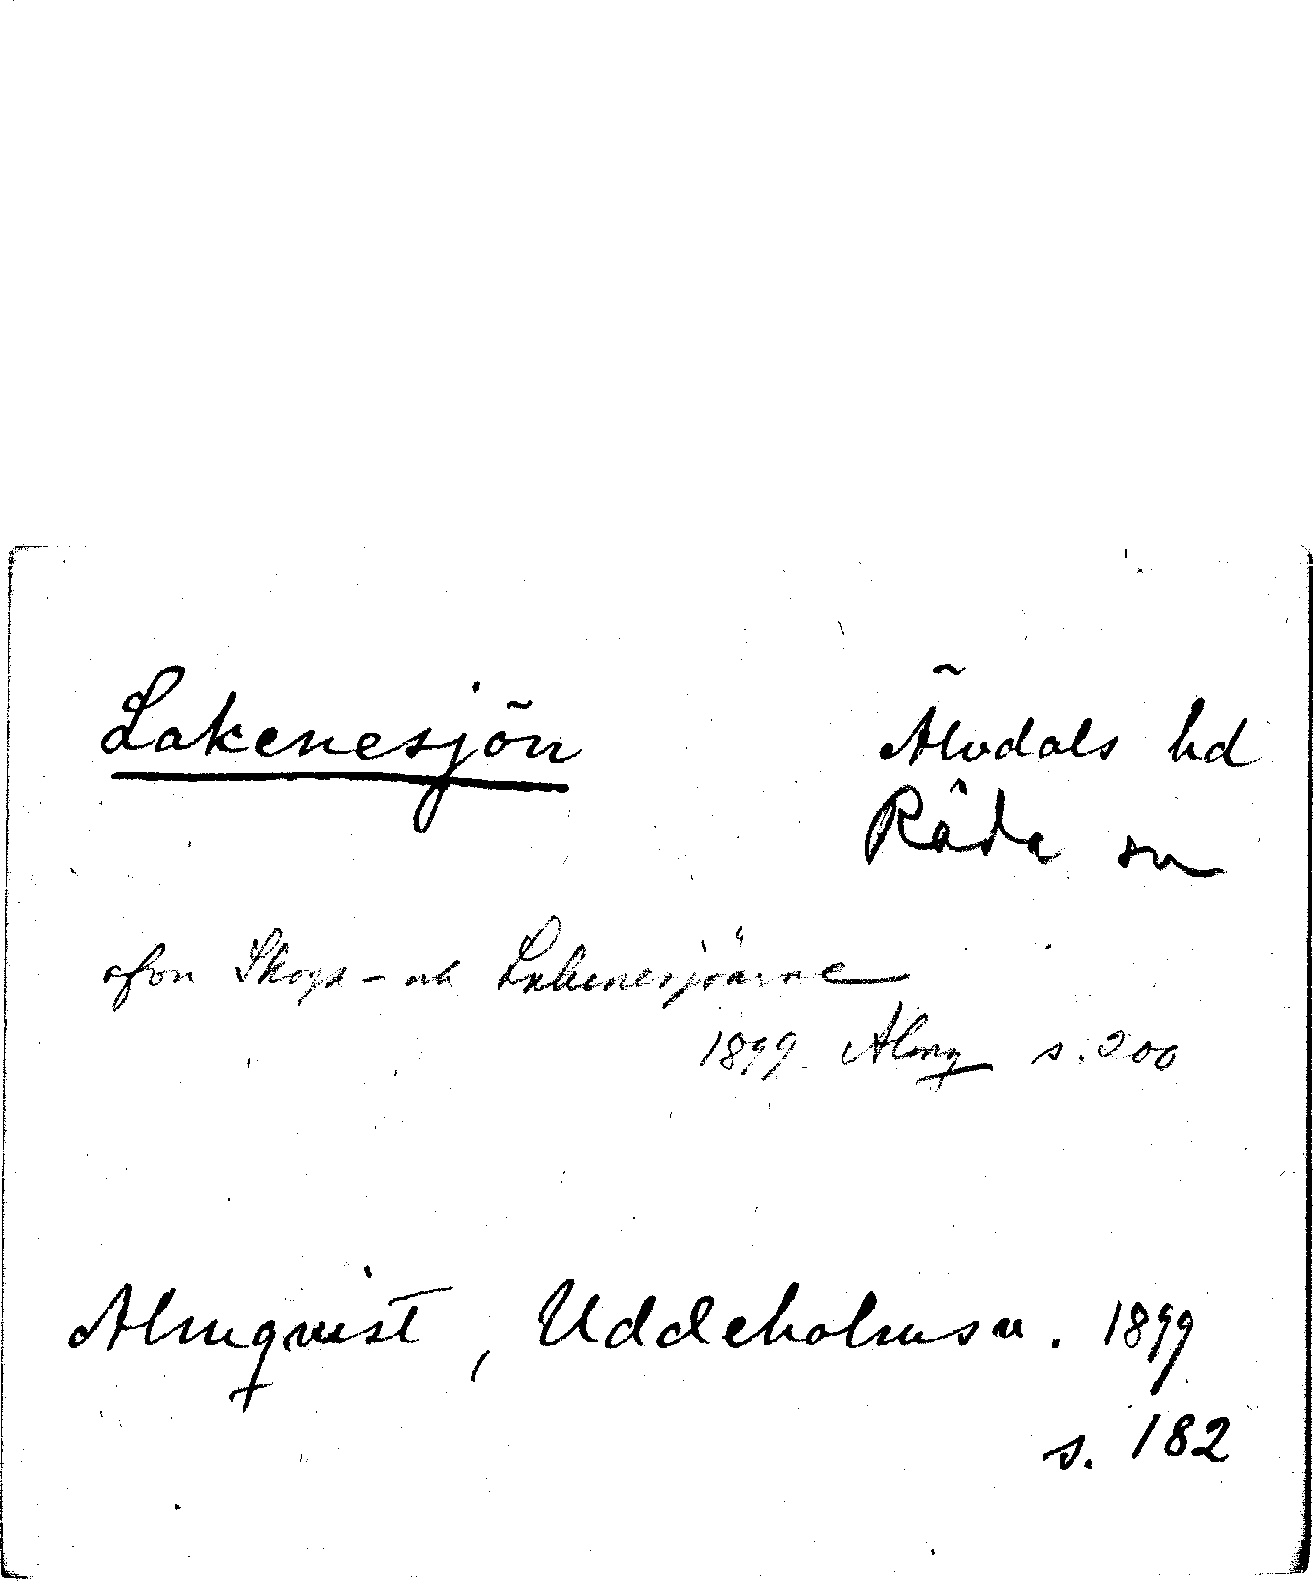 Lakenesjön
Älvdals hd
Råda sn
ofvon Skogs- och Lakenesjöarne
1899 Almq s. 200
Almqvist, Uddeholmsv. 1899
s. 182